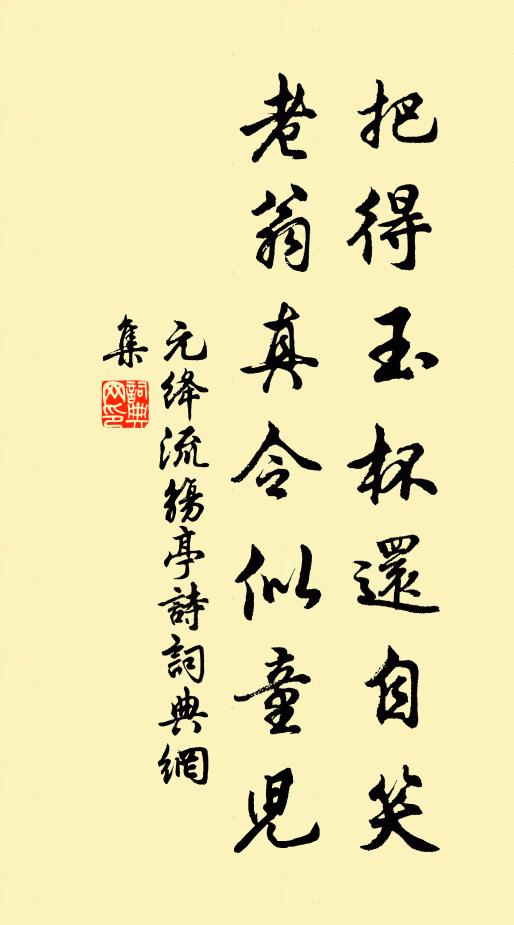 把得玉杯還自笑
老翁真令似童兒
元絳流觴亭詩詞典網
集
詞典網印